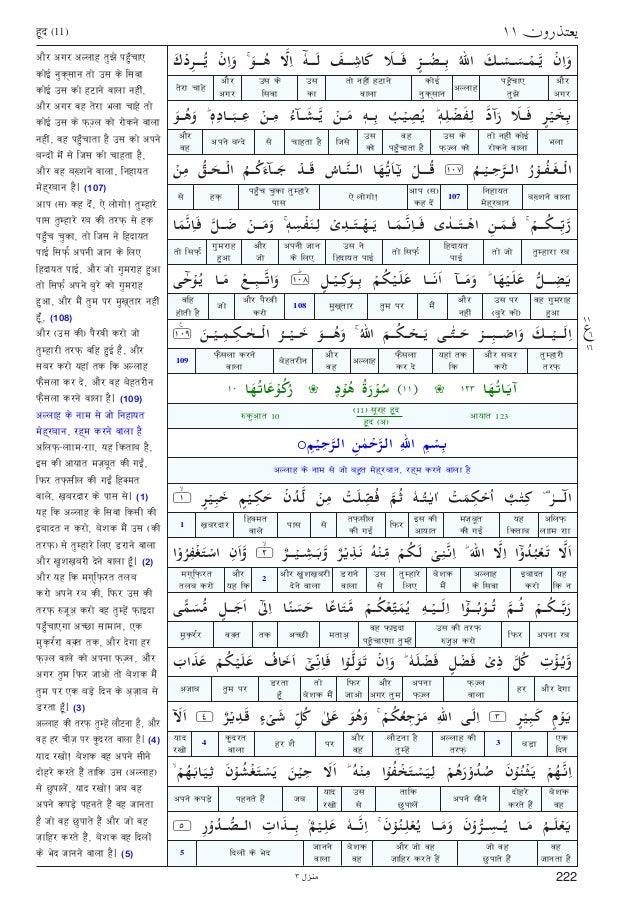 हूद (11)
يعتذرون ۱۱
और अगर अल्लाह तुझे पहुँचाए
कोई नुक़्सान तो उस के सिवा
कोई उस को हटाने वाला नहीं,
और अगर वह तेरा भला चाहे तो
कोई उस के फ़ज़्ल को रोकने वाला
नहीं, वह पहुँचाता है उस को अपने
बन्दों में से जिस को चाहता है,
और वह बख़्शने वाला, निहायत
मेह्रबान है। (107)
आप (स) कह दें, ऐ लोगो! तुम्हारे
पास तुम्हारे रब की तरफ़ से हक़
पहुँच चुका, तो जिस ने हिदायत
पाई सिर्फ़ अपनी जान के लिए
हिदायत पाई, और जो गुमराह हुआ
तो सिर्फ़ अपने बुरे को गुमराह
हुआ, और मैं तुम पर मुख़्तार नहीं
हूँ, (108)
और (उस की) पैरवी करो जो
तुम्हारी तरफ़ वहि हुई है, और
सबर करो यहां तक कि अल्लाह
फ़ैसला कर दे, और वह बेहतरीन
फ़ैसला करने वाला है। (109)
अल्लाह के नाम से जो निहायत
मेह्रबान, रहम करने वाला है
अलिफ़-लााम-राा, यह किताब है,
इस की आयात मज़बूत की गईं,
फिर तफ़्सील की गईं हिक्मत
वाले, ख़बरदार के पास से। (1)
यह कि अल्लाह के सिवा किसी की
इबादत न करो, बेशक मैं उस (की
तरफ़) से तुम्हारे लिए डराने वाला
और खुशख़बरी देने वाला हूँ। (2)
और यह कि मग़्फ़िरत तलब
करो अपने रब की, फिर उस की
तरफ़ रुजूअ़ करो वह तुम्हें फ़ाइदा
पहुँचाएगा अच्छा सामान, एक
मुक़र्ररा वक़्त तक, और देगा हर
फ़ज़्ल वाले को अपना फ़ज़्ल, और
अगर तुम फिर जाओ तो बेशक मैं
तुम पर एक बड़े दिन के अ़ज़ाब से
डरता हूँ। (3)
अल्लाह की तरफ़ तुम्हें लौटना है, और
वह हर चीज़ पर कुदरत वाला है। (4)
याद रखो! बेशक वह अपने सीने
दोहरे करते हैं ताकि उस (अल्लाह)
से छुपालें, याद रखो! जब वह
अपने कपड़े पहनते हैं वह जानता
है जो वह छुपाते हैं और जो वह
ज़ाहिर करते हैं, बेशक वह दिलों
के भेद जानने वाला है। (5)
وَاِنْ يَّمْسَسْكَ اللّٰهُ بِضُرٍّ فَلَا كَاشِفَ لَهٗٓ اِلَّا هُوَ ۚ وَاِنْ يُّرِدْكَ
और अगर | पहुँचाए तुझे | अल्लाह | कोई नुक़्सान | तो नहीं हटाने वाला | उस का | उस के सिवा | और अगर | तेरा चाहे
بِخَيْرٍ فَلَا رَآدَّ لِفَضْلِهٖ ۭ يُصِيْبُ بِهٖ مَنْ يَّشَآءُ مِنْ عِبَادِهٖ ۭ وَهُوَ
भला | तो नहीं कोई रोकने वाला | उस के फ़ज़्ल को | वह पहुँचाता है | उस को | जिसे | चाहता है | से | अपने बन्दे | और वह
الْغَفُوْرُ الرَّحِيْمُ ۱۰۷ قُلْ يٰٓاَيُّهَا النَّاسُ قَدْ جَآءَكُمُ الْحَقُّ مِنْ
बख़्शने वाला | निहायत मेह्रबान | 107 | आप (स) कह दें | ऐ लोगो! | पहुँच चुका तुम्हारे पास | हक़ | से
رَّبِّكُمْ ۚ فَمَنِ اهْتَدٰى فَاِنَّمَا يَهْتَدِيْ لِنَفْسِهٖ ۚ وَمَنْ ضَلَّ فَاِنَّمَا
तुम्हारा रब | तो जो | हिदायत पाई | तो सिर्फ़ | उस ने हिदायत पाई | अपनी जान के लिए | और जो | गुमराह हुआ | तो सिर्फ़
يَضِلُّ عَلَيْهَا ۭ وَمَآ اَنَا عَلَيْكُمْ بِوَكِيْلٍ ۱۰۸ وَاتَّبِعْ مَا يُوْحٰٓى
वह गुमराह हुआ | उस पर (बुरे को) | और नहीं | मैं | तुम पर | मुख़्तार | 108 | और पैरवी करो | जो | वहि होती है
اِلَيْكَ وَاصْبِرْ حَتّٰى يَحْكُمَ اللّٰهُ ۚ وَهُوَ خَيْرُ الْحٰكِمِيْنَ ۱۰۹
तुम्हारी तरफ़ | और सबर करो | यहां तक कि | फ़ैसला कर दे | अल्लाह | और वह | बेहतरीन | फ़ैसला करने वाला | 109
۱۱ ع ۱۶
اٰيَاتُهَا ۱۲۳ ❀ (۱۱) سُوْرَةُ هُوْدٍ ❀ رُكُوْعَاتُهَا ۱۰
आयात 123 | (11) सूरह हूद हूद (अ) | रुकूआ़त 10
بِسْمِ اللّٰهِ الرَّحْمٰنِ الرَّحِيْمِ
अल्लाह के नाम से जो बहुत मेह्रबान, रहम करने वाला है
الٓرٰ ۣ كِتٰبٌ اُحْكِمَتْ اٰيٰتُهٗ ثُمَّ فُصِّلَتْ مِنْ لَّدُنْ حَكِيْمٍ خَبِيْرٍ ۱
अलिफ़ लााम राा | यह किताब | मज़बूत की गईं | इस की आयात | फिर | तफ़्सील की गईं | से | पास | हिक्मत वाले | ख़बरदार | 1
اَلَّا تَعْبُدُوْٓا اِلَّا اللّٰهَ ۭ اِنَّنِيْ لَكُمْ مِّنْهُ نَذِيْرٌ وَّبَشِيْرٌ ۲ وَّاَنِ اسْتَغْفِرُوْا
यह कि न | इबादत करो | अल्लाह के सिवा | बेशक मैं | तुम्हारे लिए | उस से | डराने वाला | और खुशख़बरी देने वाला | 2 | और यह कि | मग़्फ़िरत तलब करो
رَبَّكُمْ ثُمَّ تُوْبُوْٓا اِلَيْهِ يُمَتِّعْكُمْ مَّتَاعًا حَسَنًا اِلٰٓى اَجَلٍ مُّسَمًّى
अपना रब | फिर | उस की तरफ़ रुजूअ़ करो | वह फ़ाइदा पहुँचाएगा तुम्हें | मताअ़ | अच्छी | तक | वक़्त | मुक़र्रर
وَّيُؤْتِ كُلَّ ذِيْ فَضْلٍ فَضْلَهٗ ۭ وَاِنْ تَوَلَّوْا فَاِنِّيْٓ اَخَافُ عَلَيْكُمْ عَذَابَ
और देगा | हर | फ़ज़्ल वाला | अपना फ़ज़्ल | और अगर तुम | फिर जाओ | तो बेशक मैं | डरता हूँ | तुम पर | अ़ज़ाब
يَوْمٍ كَبِيْرٍ ۳ اِلَى اللّٰهِ مَرْجِعُكُمْ ۚ وَهُوَ عَلٰى كُلِّ شَيْءٍ قَدِيْرٌ ۴ اَلَآ
एक दिन | बड़ा | 3 | अल्लाह की तरफ़ | लौटना है तुम्हें | और वह | पर | हर शै | कुदरत वाला | 4 | याद रखो
اِنَّهُمْ يَثْنُوْنَ صُدُوْرَهُمْ لِيَسْتَخْفُوْا مِنْهُ ۭ اَلَا حِيْنَ يَسْتَغْشُوْنَ ثِيَابَهُمْ ۙ
बेशक वह | दोहरे करते हैं | अपने सीने | ताकि छुपालें | उस से | याद रखो | जब | पहनते हैं | अपने कपड़े
يَعْلَمُ مَا يُسِرُّوْنَ وَمَا يُعْلِنُوْنَ ۚ اِنَّهٗ عَلِيْمٌۢ بِذَاتِ الصُّدُوْرِ ۵
वह जानता है | जो वह छुपाते हैं | और जो वह ज़ाहिर करते हैं | बेशक वह | जानने वाला | दिलों के भेद | 5
منزل ۳
222